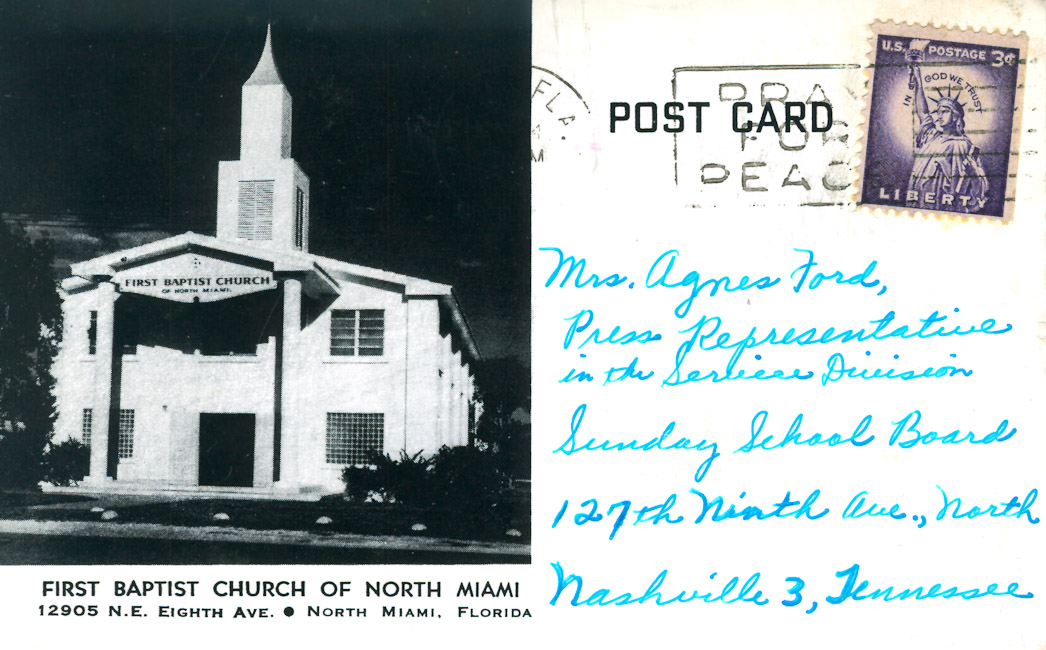 FIRST BAPTIST CHURCH
OF NORTH MIAMI.
FIRST BAPTIST CHURCH OF NORTH MIAMI
12905 N.E. EIGHTH AVE. ● NORTH MIAMI, FLORIDA
FLA.
M
POST CARD
PRAY
FOR
PEAC
U.S. POSTAGE 3¢
IN GOD WE TRUST
LIBERTY
Mrs. Agnes Ford,
Press Representative
in the Service Division
Sunday School Board
127th Ninth Ave., North
Nashville 3, Tennessee